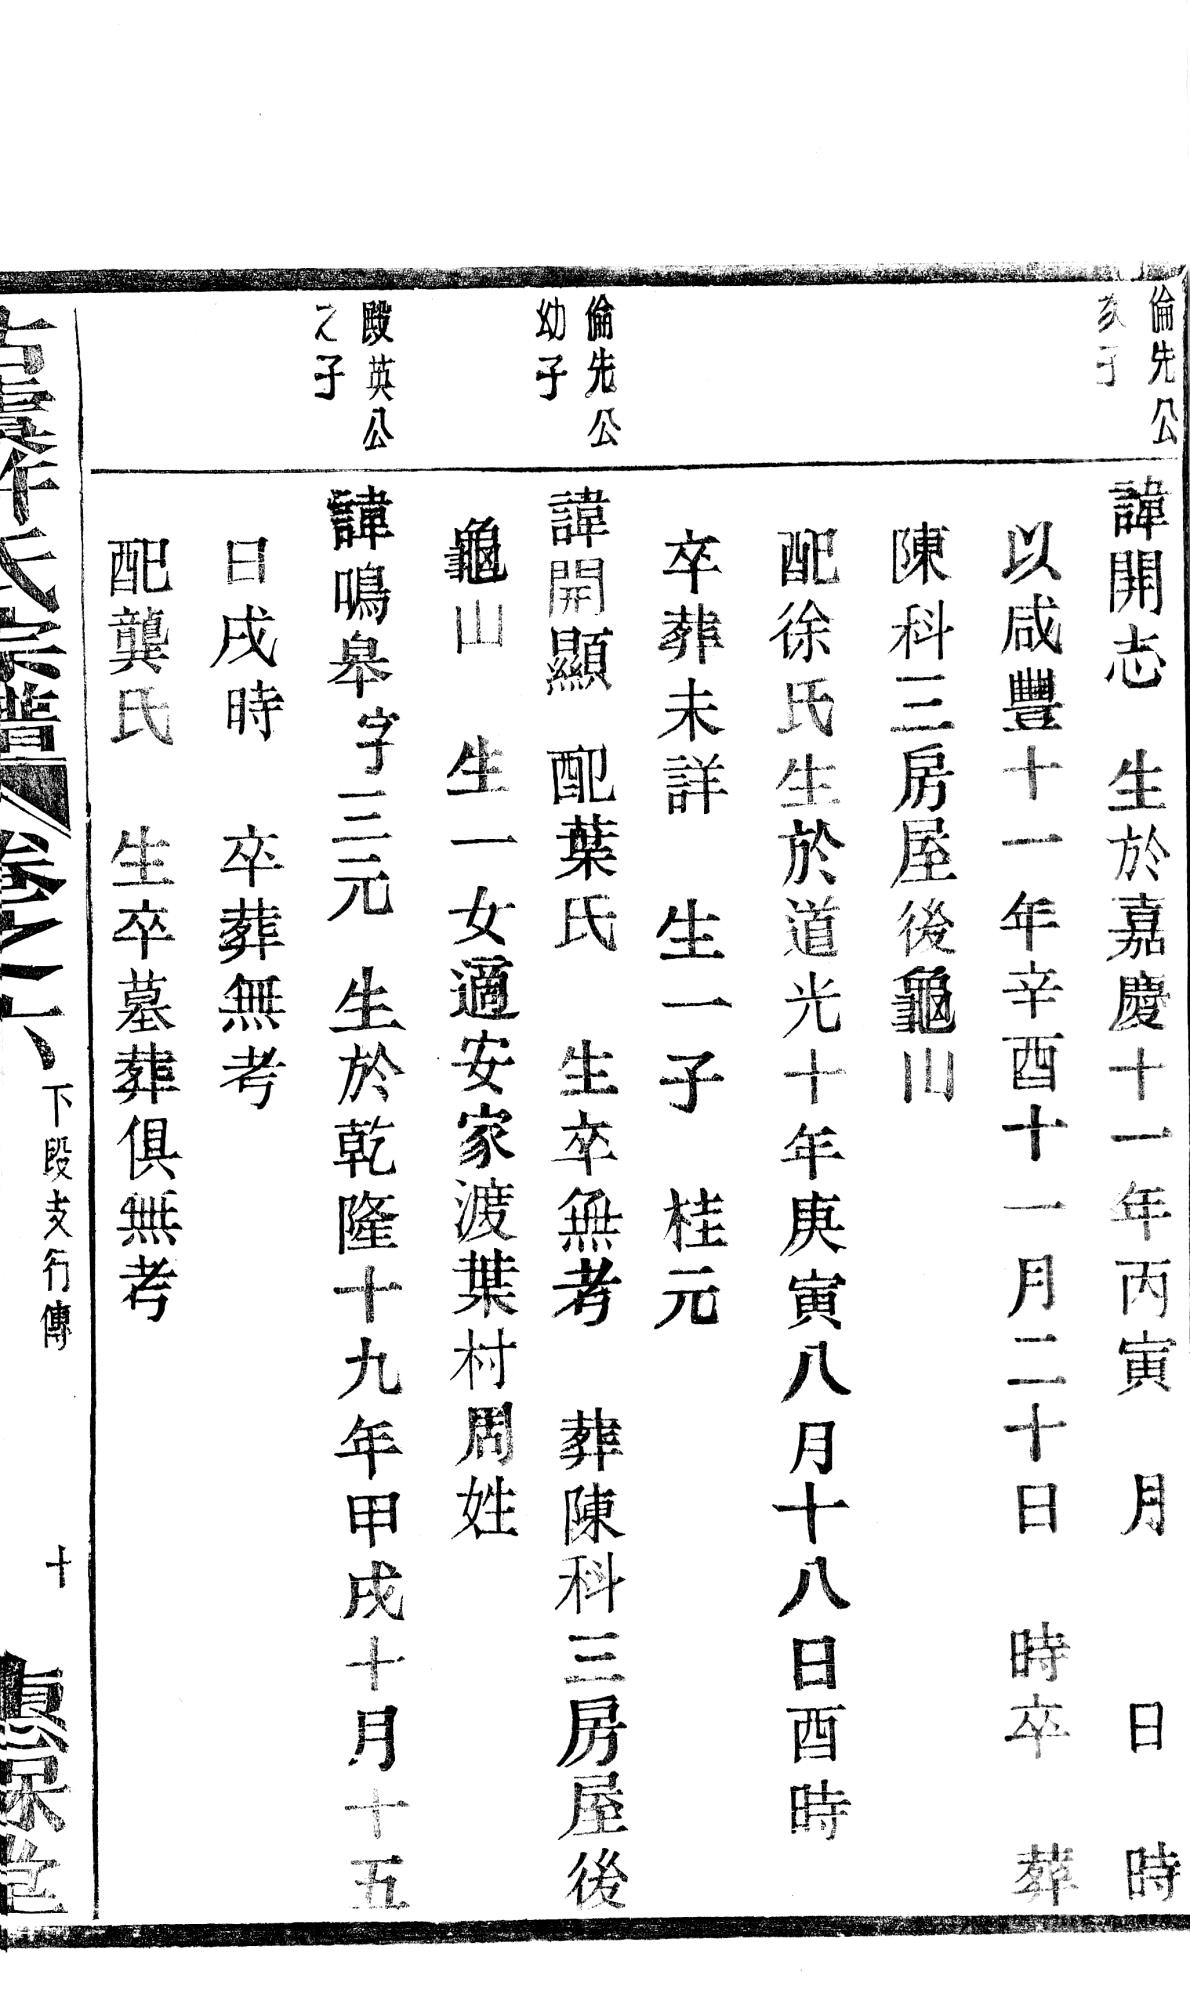 倫先公
次子
諱開志　生於嘉慶十一年丙寅　月　　日　時
以咸豐十一年辛酉十一月二十日　時卒　葬
陳科三房屋後龜山
配徐氏生於道光十年庚寅八月十八日酉時
卒葬未詳　生一子　桂元
倫先公
幼子
諱開顯　配葉氏　生卒無考　葬陳科三房屋後
龜山　生一女適安家渡葉村周姓
殿英公
之子
諱鳴皋字三元　生於乾隆十九年甲戌十月十五
日戌時　卒葬無考
配龔氏　生卒墓葬俱無考
古虞許氏宗譜 卷之六 下段支行傳 十